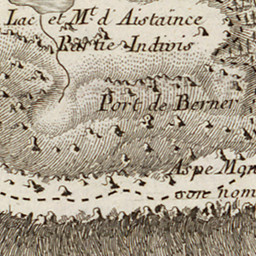 Lac et Mt. d'Aistaince
Partie Indivis
Port de Berner
Aspe Mon
sont nom